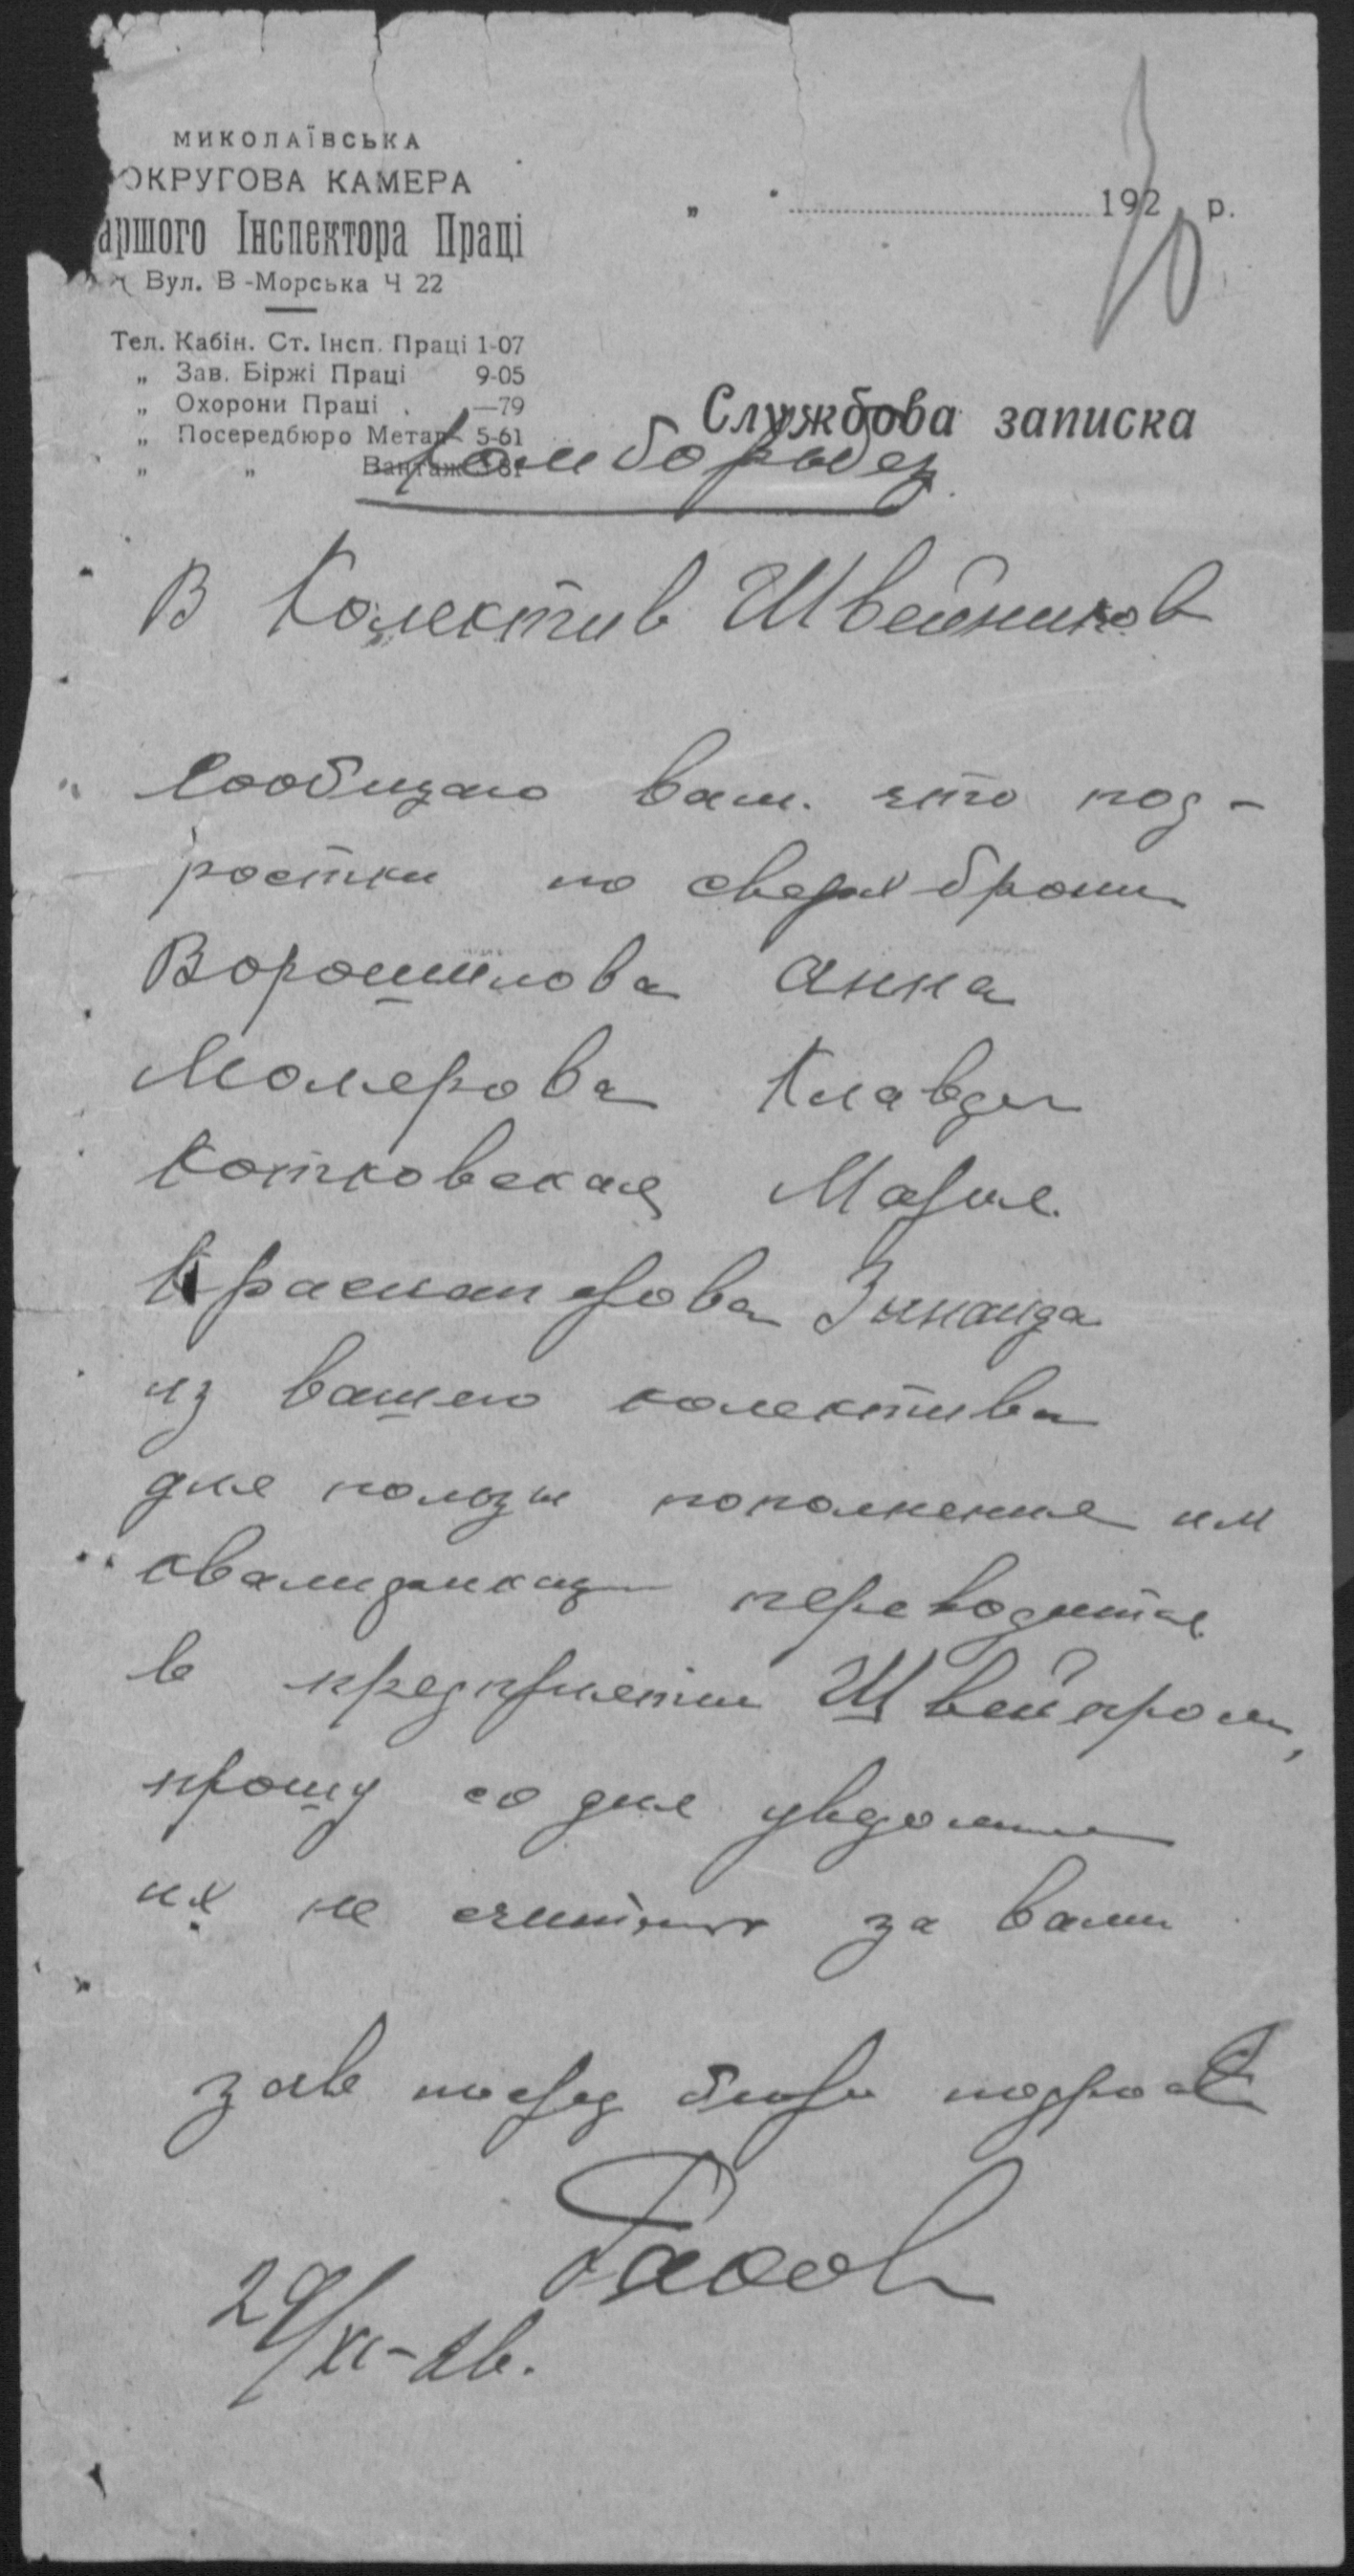 МИКОЛАЇВСЬКА
ОКРУГОВА КАМЕРА
аршого Інспектора Праці
Вул. В-Морська Ч 22
Тел. Кабін. Ст. Інсп. Праці 1-07
„ Зав. Біржі Праці 9-05
„ Охорони Праці . —79
„ Посередбюро Метал 5-61
„ „ Вантаж
„ " 192 р.
Службова записка
Комборьбез
В Колектив Швейников
Сообщаю вам. что под-
ростки по сверх брони
Ворошилова Анна
Молерова Клавдия
Котковская Мария
Зинаида
из вашего колектива
для пользы пополнения им
квалификации переводится
в предприятии Швейпром,
прошу со дня уведомлен
их не считать за вами
зав посред бюро подрост
29/XI-26.